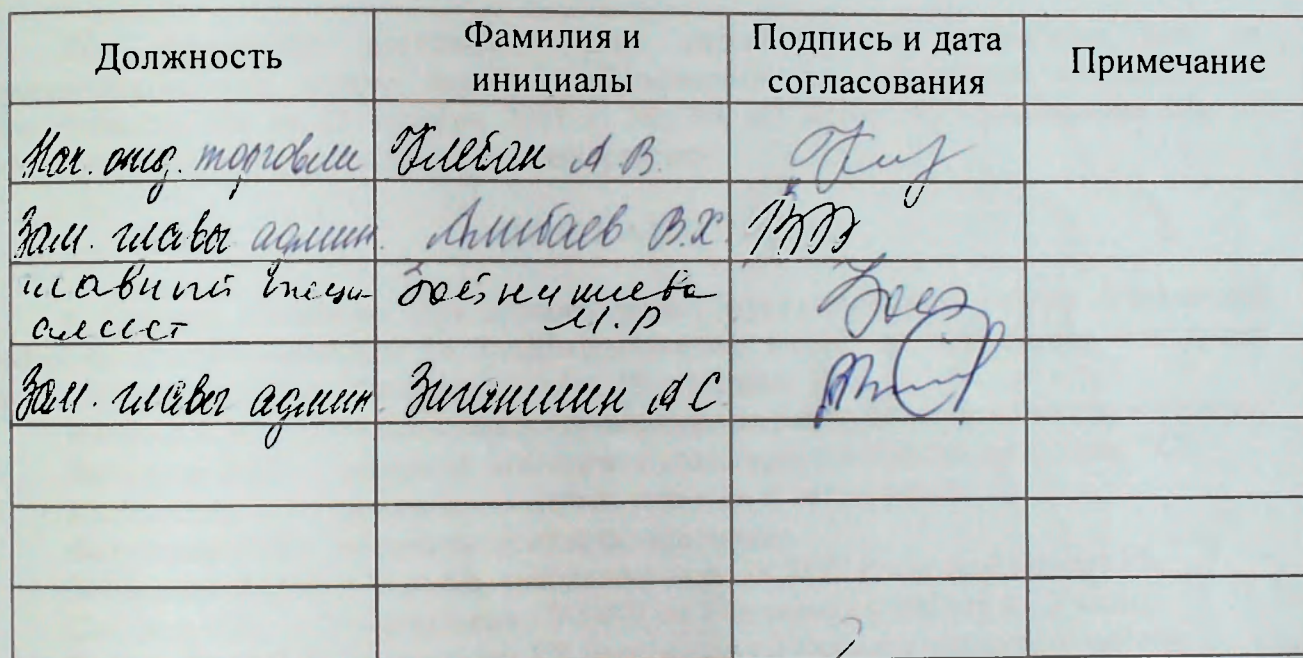 Должность
Фамилия и
инициалы
Подпись и дата
согласования
Примечание
Нач. отд. торговли Клебан А.В.
Зам. главы админ. Алибаев В.Х.
главный специ
алист
М.Р
Зам. главы админ. Зиганшин А С